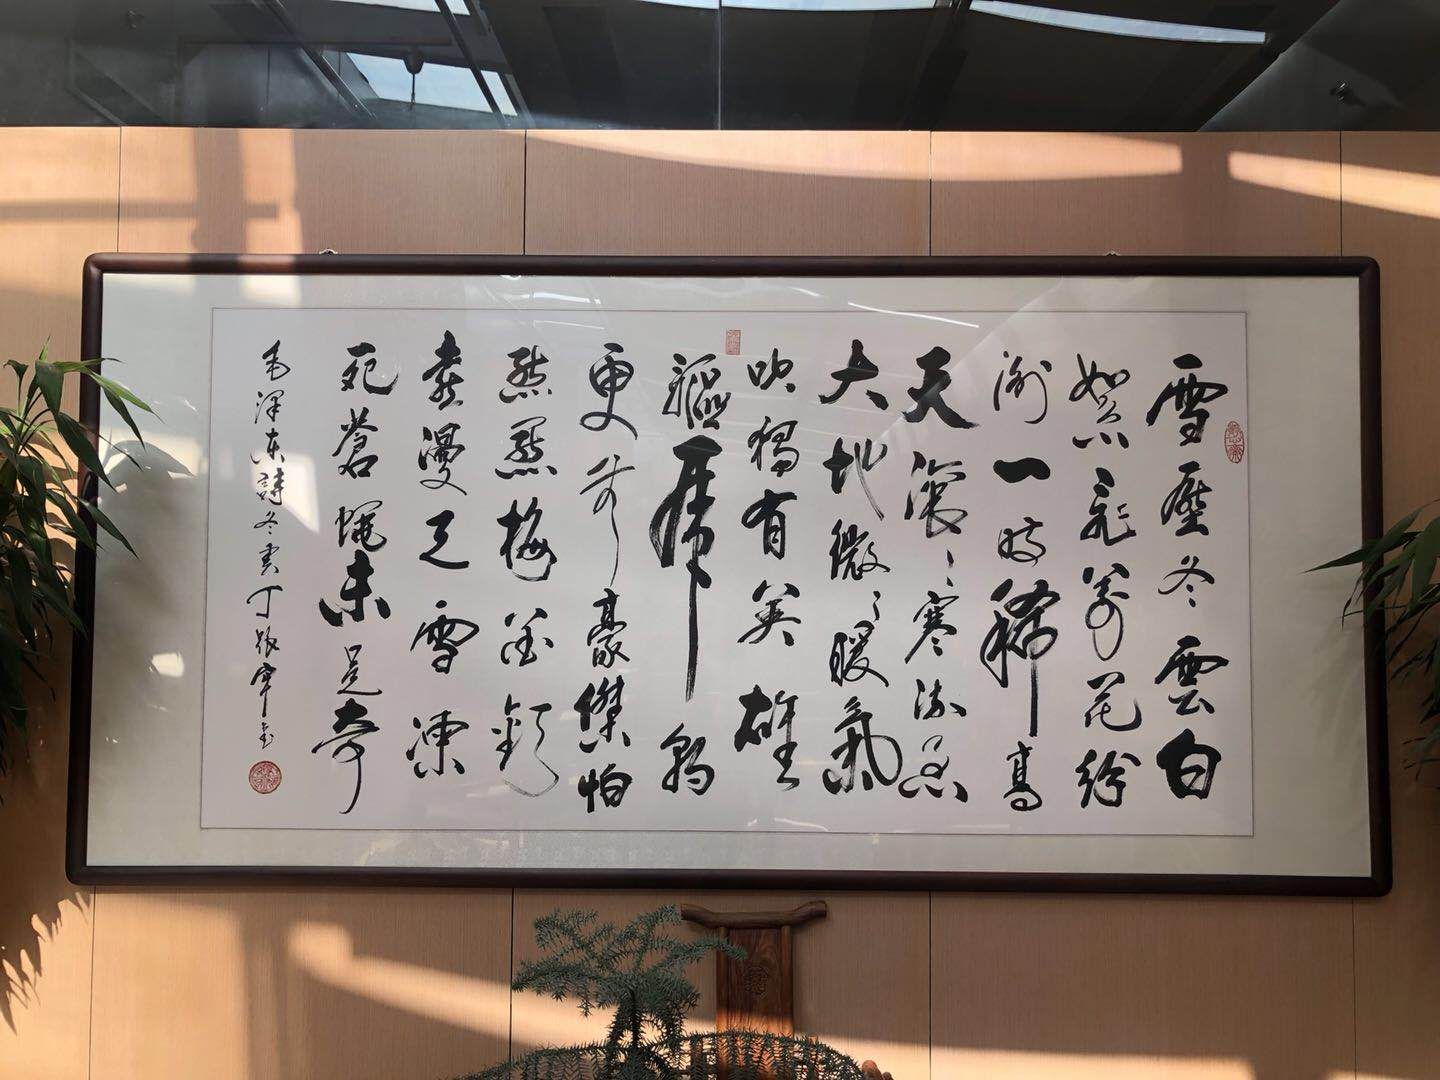 雪壓冬雲白
絮飛萬花紛
謝一時稀高
天滚〻寒流急
大地微〻暖氣
吹獨有英雄
驅虎豹
更無豪傑怕
熊羆梅花歡
喜漫天雪凍
死蒼蠅未足奇
毛澤東詩冬雲丁振